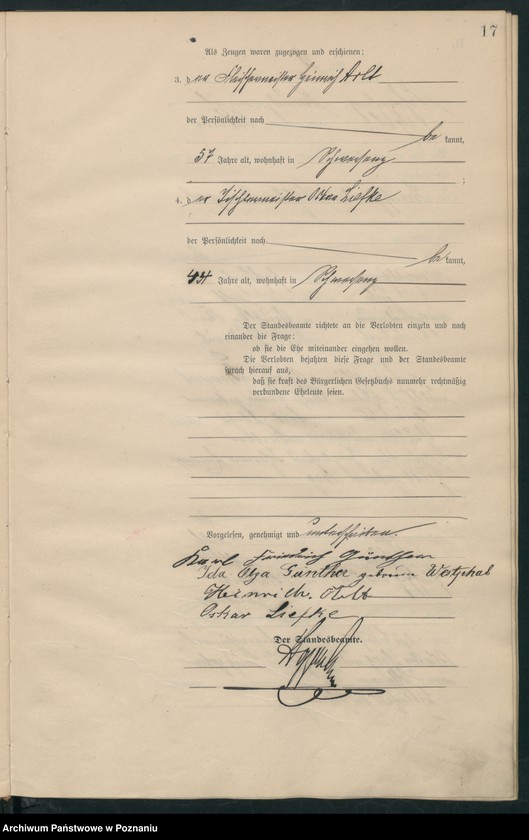 17
Als Zeugen waren zugezogen und erschienen:
3. der Fleischermeister Heinrich Arlt
der Persönlichkeit nach
be kannt,
57 Jahre alt, wohnhaft in Schwersenz
;
4. der Tischlermeister Oskar Liefke
der Persönlichkeit nach
be kannt,
44 Jahre alt, wohnhaft in Schwersenz
Der Standesbeamte richtete an die Verlobten einzeln und nach
einander die Frage:
ob sie die Ehe miteinander eingehen wollen.
Die Verlobten bejahten diese Frage und der Standesbeamte
sprach hierauf aus,
daß sie kraft des Bürgerlichen Gesetzbuchs nunmehr rechtmäßig
verbundene Eheleute seien.
Vorgelesen, genehmigt und unterschrieben.
Karl Friedrich Günther
Ida Olga Günther geborene Westphal
Heinrich Arlt
Oskar Liefke
Der Standesbeamte.
Archiwum Państwowe w Poznaniu